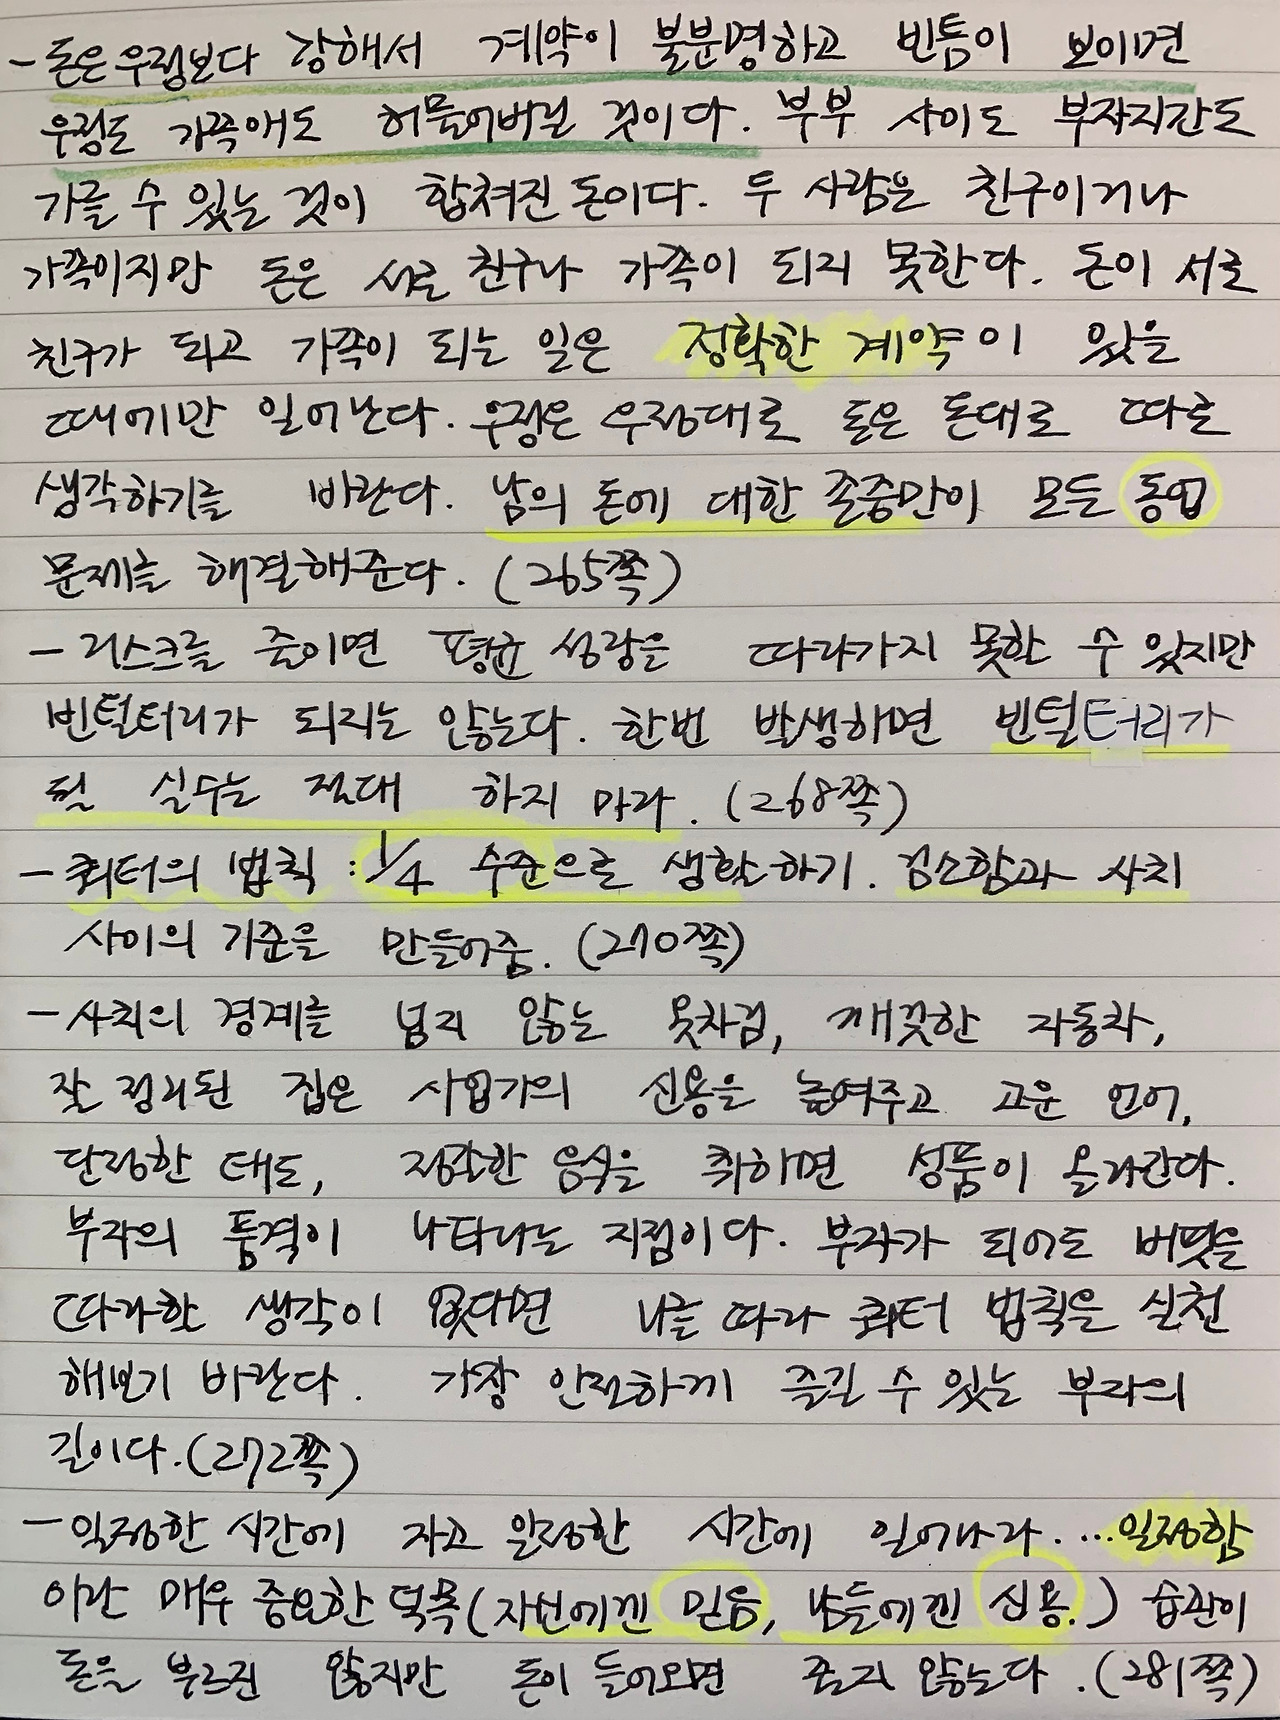 - 돈은 우정보다 강해서 계약이 불분명하고 빈틈이 보이면
우정도 가족애도 허물어버릴 것이다. 부부 사이도 부자지간도
가를 수 있는 것이 합쳐진 돈이다. 두 사람은 친구이거나
가족이지만 돈은 서로 친구나 가족이 되지 못한다. 돈이 서로
친구가 되고 가족이 되는 일은 정확한 계약이 있을
때에만 일어난다. 우정은 우정대로 돈은 돈대로 따로
생각하기를 바란다. 남의 돈에 대한 존중만이 모든 동업
문제를 해결해준다. (265쪽)
- 리스크를 줄이면 평균 성장을 따라가지 못할 수 있지만
빈털터리가 되지는 않는다. 한번 발생하면 빈털터리가
될 실수는 절대 하지 마라. (268쪽)
- 쿼터의 법칙 : 1/4 수준으로 생활하기. 검소함과 사치
사이의 기준을 만들어줌. (270쪽)
- 사치의 경계를 넘지 않는 옷차림, 깨끗한 자동차,
잘 정리된 집은 사업가의 신용을 높여주고 고운 언어,
단정한 태도, 정갈한 음식을 취하면 성품이 올라간다.
부자의 품격이 나타나는 지점이다. 부자가 되어도 버핏을
따라할 생각이 없다면 나를 따라 쿼터 법칙을 실천
해보기 바란다. 가장 안전하게 즐길 수 있는 부자의
길이다. (272쪽)
- 일정한 시간에 자고 일정한 시간에 일어나라. ...일정함
이란 매우 중요한 덕목(자신에겐 믿음, 남들에겐 신용.) 습관이
돈을 부르진 않지만 돈이 들어오면 줄지 않는다. (281쪽)